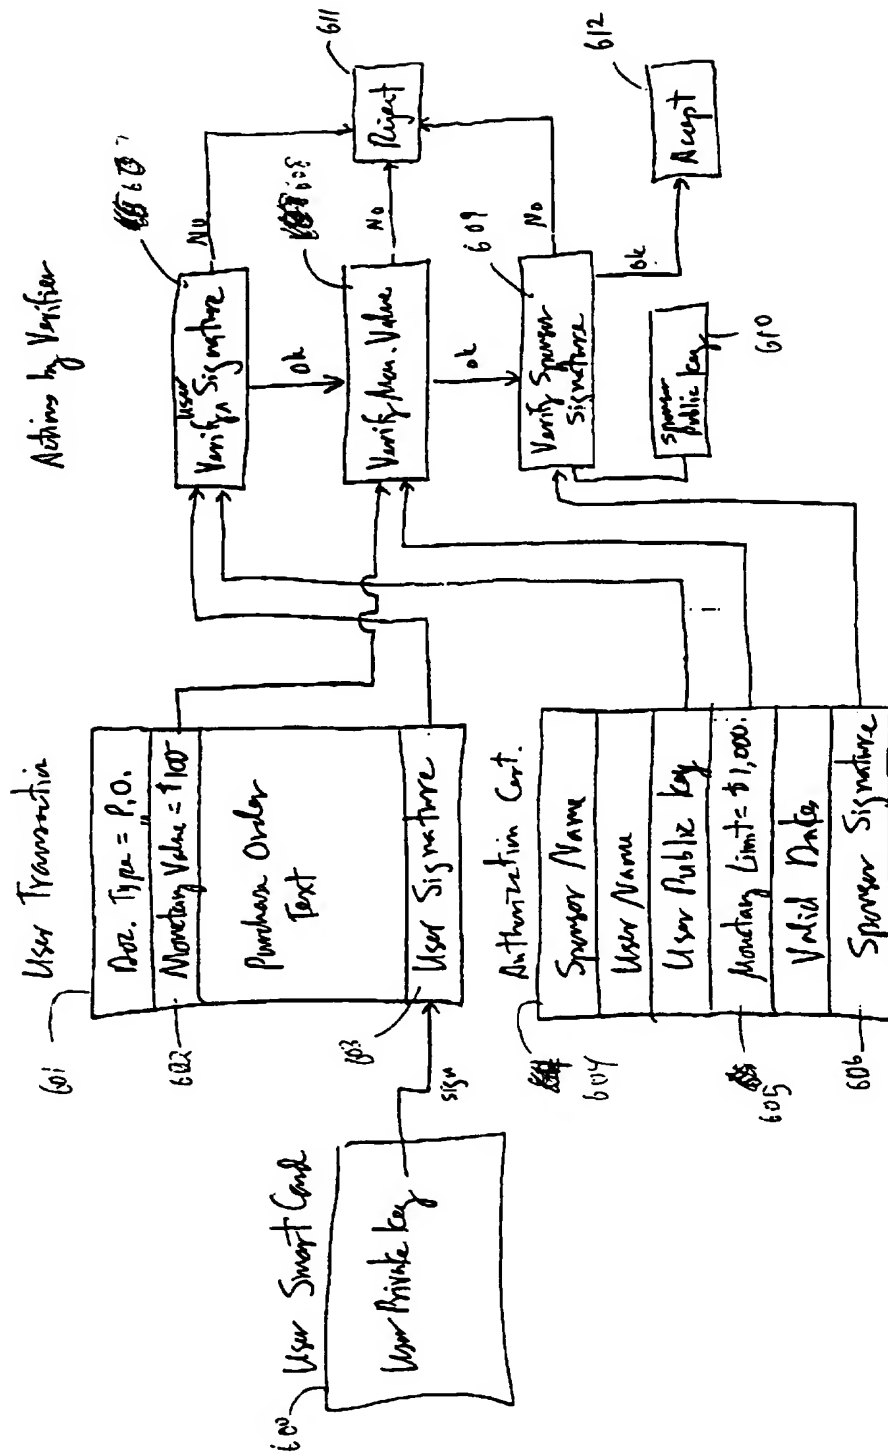 User Smart Card
600
User Private Key
sign
User Transaction
601
Doc. Type = P.O.
Monetary Value = $100
602
Purchase Order
Text
603
User Signature
Authorization Cert.
604
Sponsor Name
User Name
User Public Key
Monetary Limit = $1,000.
605
Valid Dates
Sponsor Signature
606
Actions by Verifier
607
User
Verify Signature
No
Ok
608
Verify Mon. Value
No
Ok
609
Verify Sponsor
Signature
No
Ok
Sponsor
Public Key
610
Reject
611
Accept
612